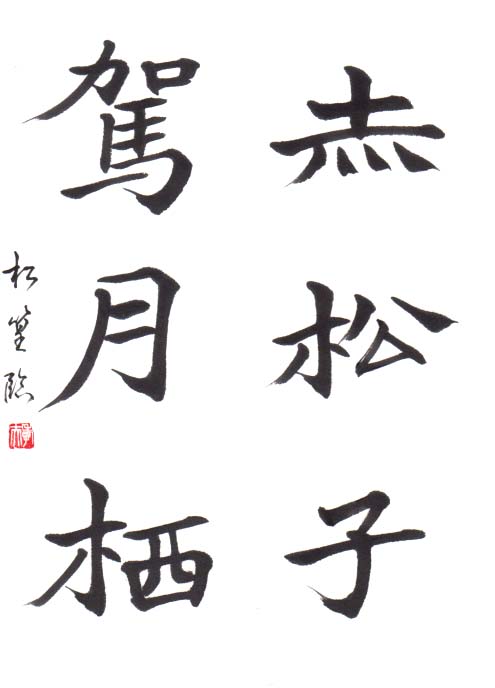 赤松子
駕月栖
松篁臨